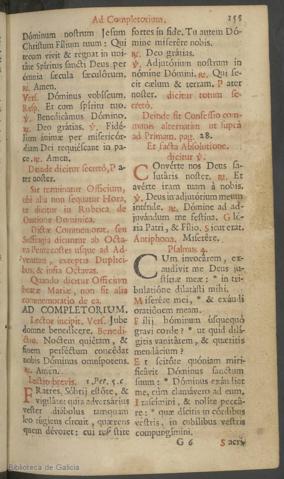 Ad Completorium. 155
Dóminum nostrum Jesum
Christum Fílium tuum: Qui
tecum vivit & regnat in uni-
táte Spíritus sancti Deus per
ómnia sæcula sæculórum.
℟. Amen.
Vers. Dóminus vobíscum.
Resp. Et cum spíritu tuo.
℣. Benedicámus Dómino.
℟. Deo grátias. ℣. Fidé-
lium ánimæ per misericór-
diam Dei requiéscant in pa-
ce. ℟. Amen.
Deinde dicitur secretò, Pa-
ter noster.
Sic terminatur Officium,
ubi alia non sequatur Hora,
ut dicitur in Rubrica de
Oratione Dominica.
Dictæ Commemorat. seu
Suffragia dicuntur ab Octa-
va Pentecostes usque ad Ad-
ventum, exceptis Duplici-
bus, & infra Octavas.
Quando dicitur Officium
beatæ Mariæ, non fit alia
commemoratio de ea.
AD COMPLETORIUM.
Lector incipit. Vers. Jube
domne benedícere. Benedi-
ctio. Noctem quiétam, &
finem perféctum concédat
nobis Dóminus omnípotens.
℟. Amen.
Lectio brevis. 1. Pet. 5. c.
FRatres, Sóbrii estóte, &
vigiláte: quia adversárius
vester diábolus tamquam
leo rúgiens círcuit, quærens
quem dévoret: cui resístite
fortes in fide. Tu autem Dó-
mine miserére nobis.
℟. Deo grátias.
℣. Adjutórium nostrum in
nómine Dómini. ℟. Qui fe-
cit cælum & terram. Pater
noster. dicitur totum se-
cretò.
Deinde fit Confessio com-
munis alternatim ut suprà
ad Primam, pag. 28.
Et facta Absolutione,
dicitur ℣.
COnvérte nos Deus sa-
lutáris noster. ℟. Et
avérte iram tuam à nobis.
℣. Deus in adjutórium meum
inténde. ℟. Dómine ad ad-
juvándum me festína. Gló-
ria Patri, & Fílio. Sicut erat.
Antiphona. Miserére.
Psalmus 4.
CUm invocárem, ex-
audívit me Deus ju-
stítiæ meæ: * in tri-
bulatióne dilatásti mihi.
Miserére mei, * & exáudi
oratiónem meam.
Fílii hóminum úsquequò
gravi corde? * ut quid dilí-
gitis vanitátem, & quæritis
mendácium?
Et scitóte quóniam miri-
ficávit Dóminus sanctum
suum: * Dóminus exáudiet
me, cùm clamávero ad eum.
Irascímini, & nolíte peccá-
re: * quæ dícitis in córdibus
vestris, in cubílibus vestris
compungímini.
G 6 Sacri-
Biblioteca de Galicia